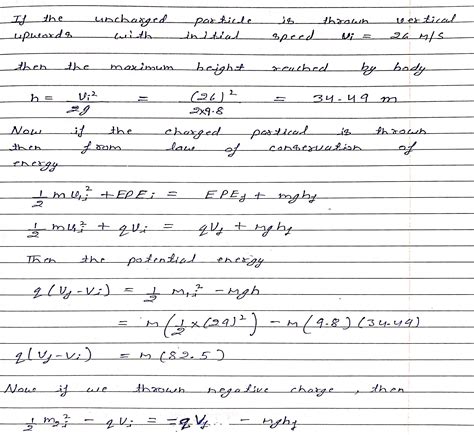 If the uncharged particle is thrown vertical
upwards with initial speed vi = 26 m/s
then the maximum height reached by body
h = vi²/2g = (26)²/2×9.8 = 34.49 m
Now if the charged partical is thrown
then from law of conservation of
energy
1/2 m v1i² + EPEi = EPEf + mghf
1/2 m v1i² + qVi = qVf + mghf
Then the potential energy
q(Vf - Vi) = 1/2 m1i² - mgh
= m(1/2 × (29)²) - m(9.8)(34.49)
q(Vf - Vi) = m(82.5)
Now if we thrown negative charge, then
1/2 m2i² - qVi = -qVf - mghf